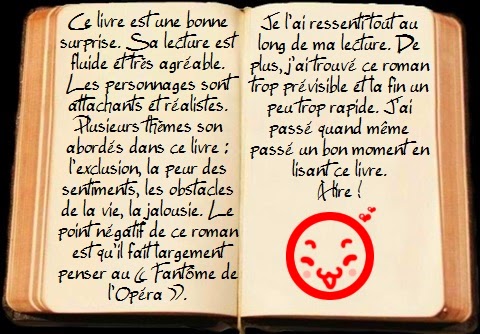 Ce livre est une bonne
surprise. Sa lecture est
fluide et très agréable.
Les personnages sont
attachants et réalistes.
Plusieurs thèmes son
abordés dans ce livre :
l'exclusion, la peur des
sentiments, les obstacles
de la vie, la jalousie. Le
point négatif de ce roman
est qu'il fait largement
penser au « Fantôme de
l'Opéra ».
Je l'ai ressenti tout au
long de ma lecture. De
plus, j'ai trouvé ce roman
trop prévisible et la fin un
peu trop rapide. J'ai
passé quand même
passé un bon moment en
lisant ce livre.
A lire !